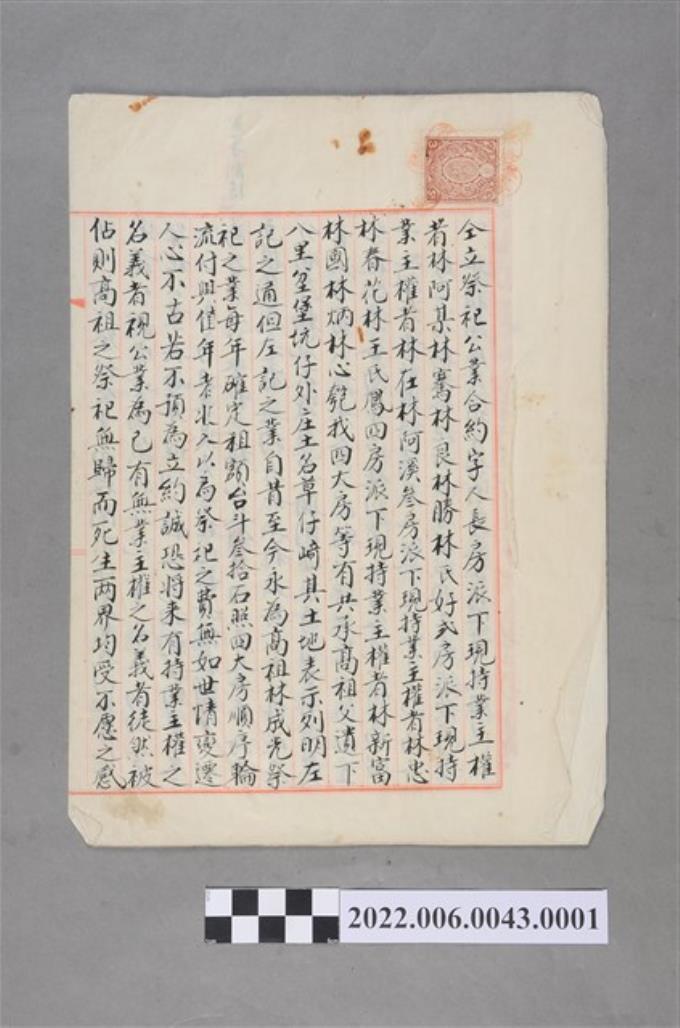 仝立祭祀公業合約字人長房派下現持業主權
者林阿某林騫林良林勝林氏好弍房派下現持
業主權者林在林阿溪叁房派下現持業主權者林忠
林春花林王氏鳳四房派下現持業主權者林新富
林國林炳林心匏我四大房等有共承高祖父遺下
八里坌堡坑仔外庄土名草仔崎其土地表示列明左
記之通但左記之業自昔至今永為高祖林成光祭
祀之業每年確定租額台斗叁拾石照四大房順序輪
流付與値年者收入以為祭祀之費無如世情變遷
人心不古若不預為立約誠恐將来有持業主權之
名義者視公業為己有無業主權之名義者徒然被
佔則高祖之祭祀無歸而死生両界均受不愿之感
2022.006.0043.0001